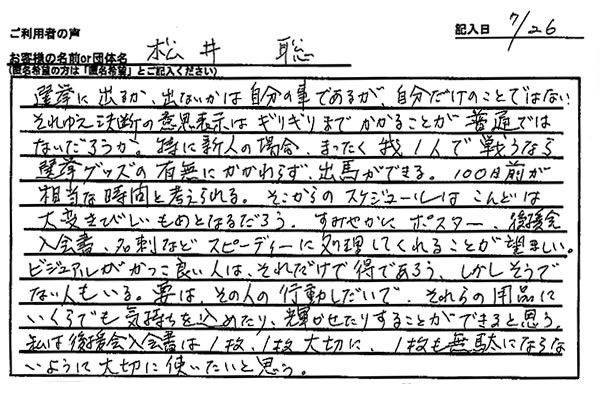 ご利用者の声
記入日 7/26
お客様の名前or団体名 松井 聡
(匿名希望の方は「匿名希望」とご記入ください)
選挙に出るか、出ないかは自分の事であるが、自分だけのことではない
それゆえ決断の意思表示はギリギリまでかかることが普通では
ないだろうか。特に新人の場合、まったく我1人で戦うなら
選挙グッズの有無にかかわらず、出馬ができる。100日前が
相当な時間と考えられる。そこからのスケジュールはこんどは
大変きびしいものとなるだろう。すみやかにポスター、後援会
入会書、名刺などスピーディーに処理してくれることが望ましい。
ビジュアルがかっこ良い人は、それだけで得であろう、しかしそうで
ない人もいる。要は、その人の行動しだいで、それらの用品に
いくらでも気持ちを込めたり、輝かせたりすることができると思う。
私は後援会入会書は1枚、1枚大切に、1枚も無駄にならな
いように大切に使いたいと思う。